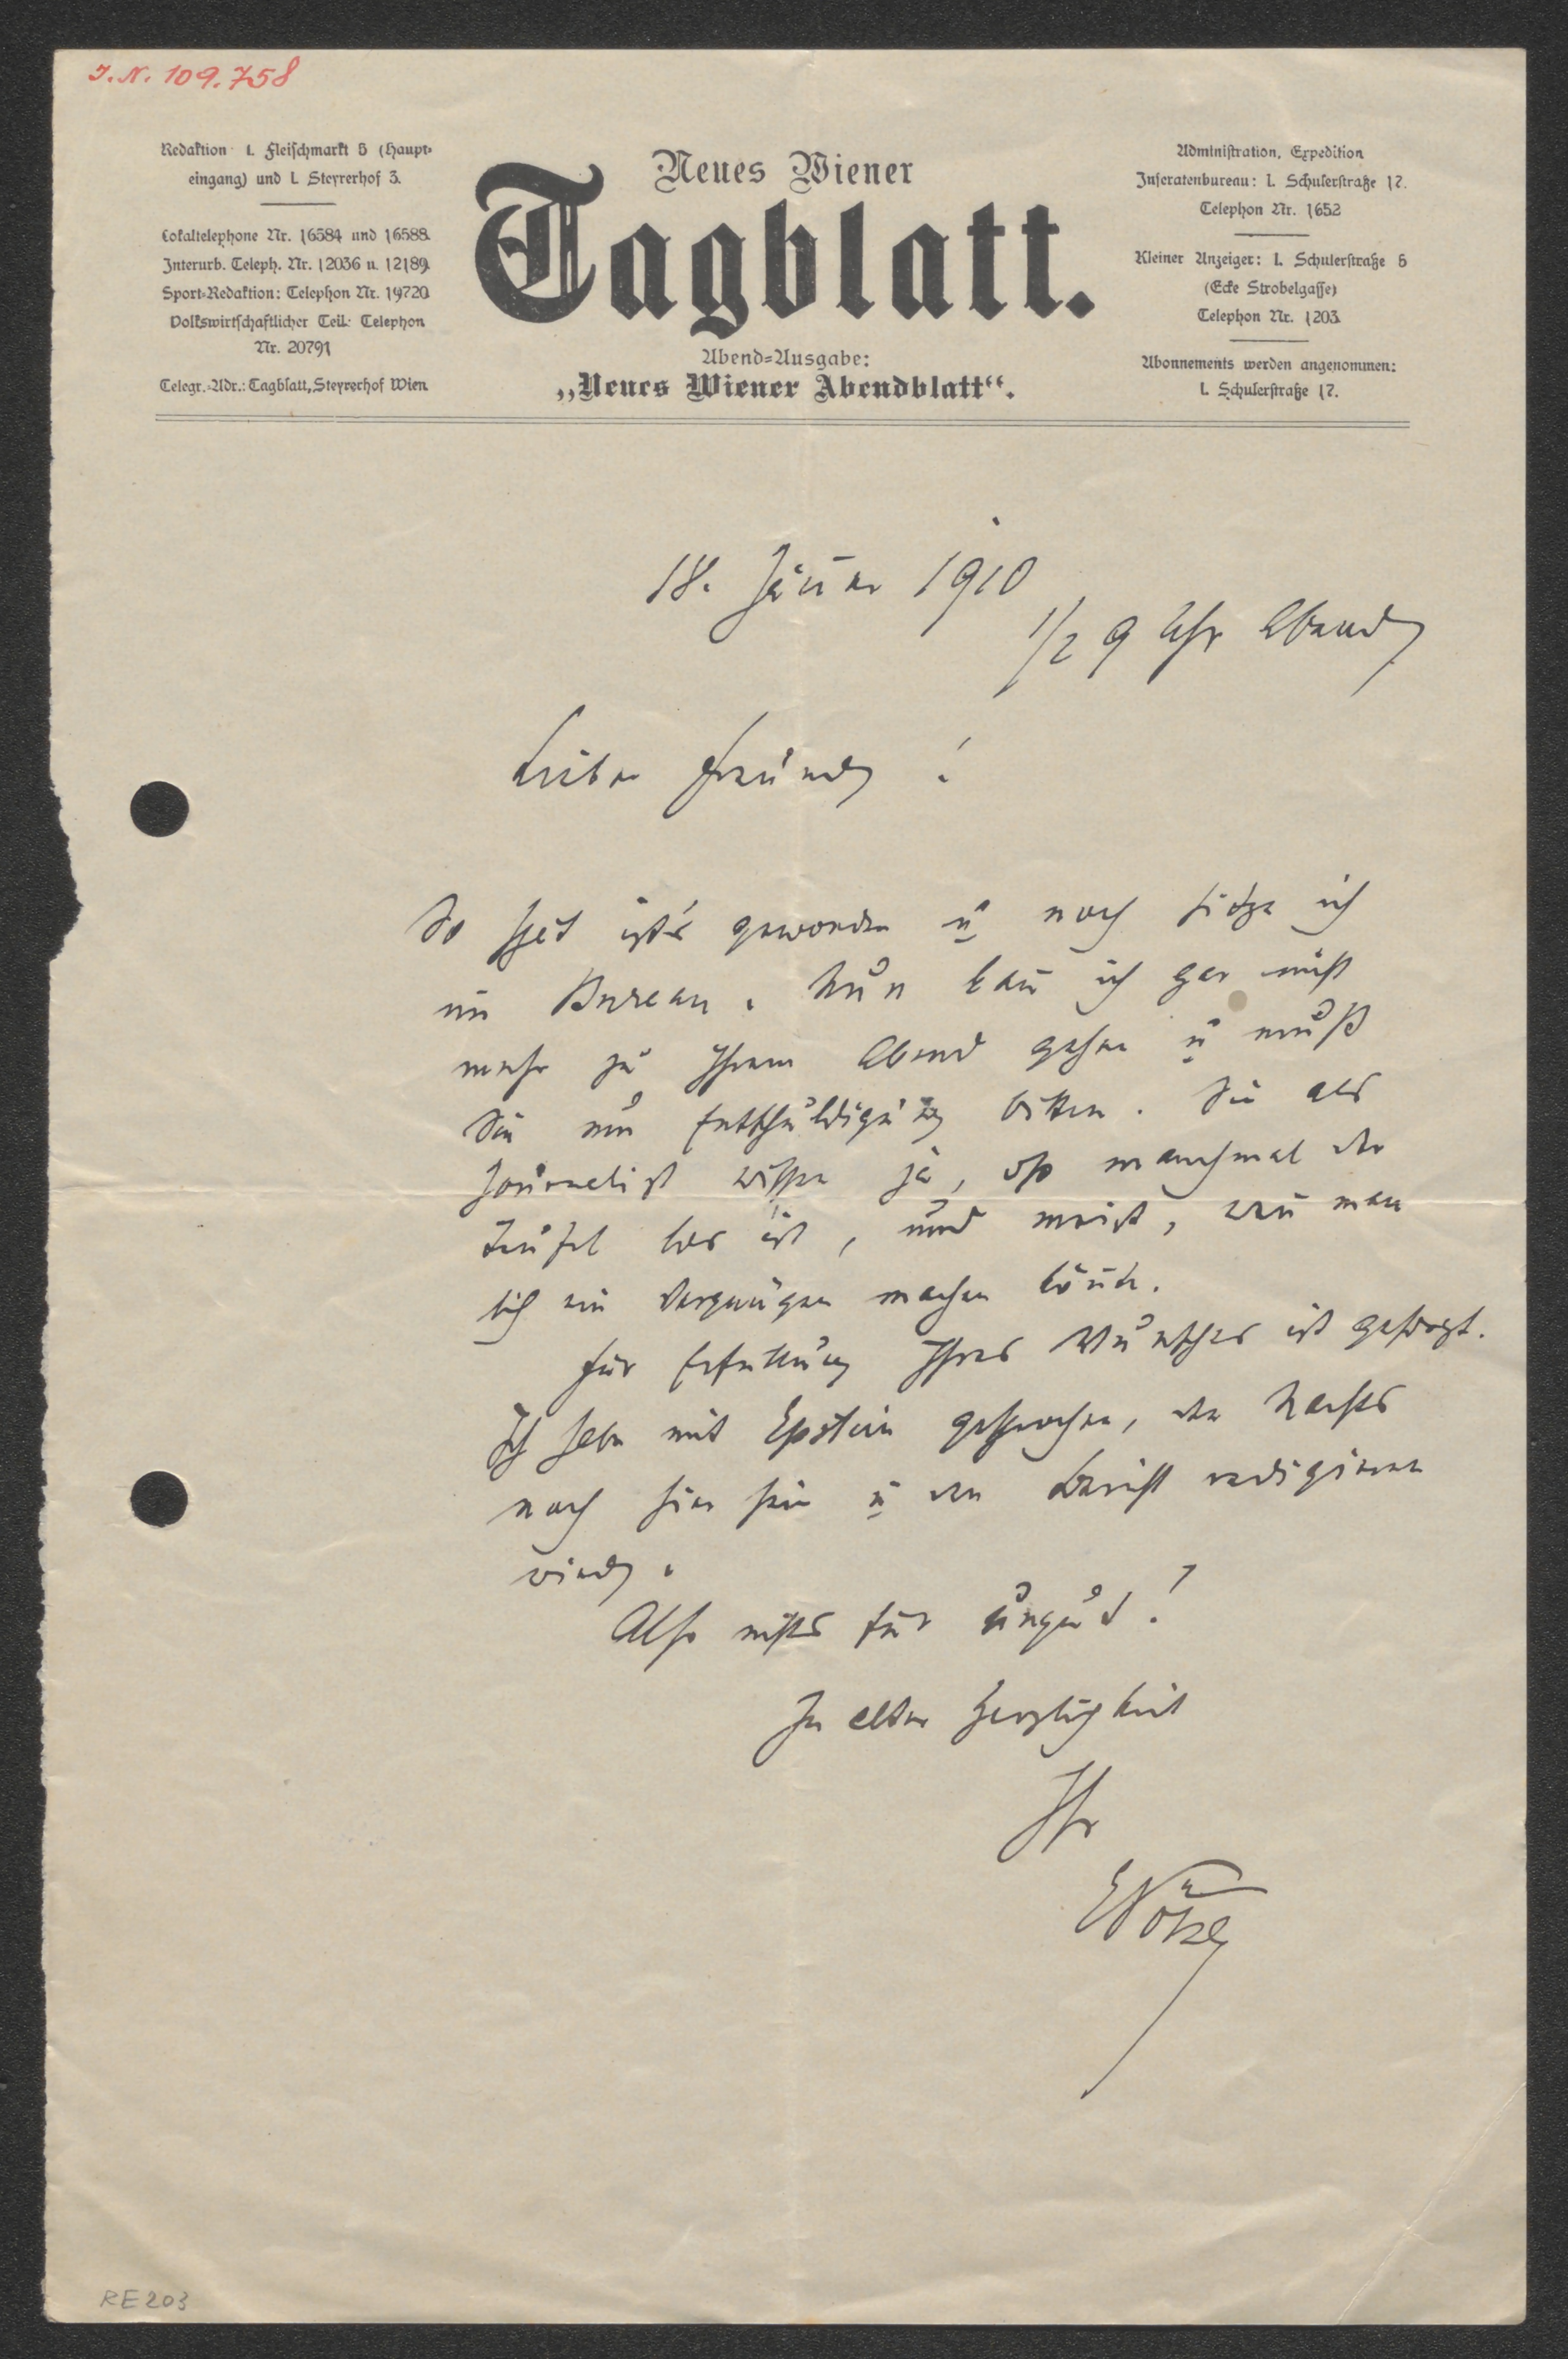 J. N. 109.758
Redaktion I. Fleischmarkt 5 (Haupt-
eingang) und I. Steyrerhof 3.
Lokaltelephone Nr. 16584 und 16588.
Interurb. Teleph. Nr. 12036 u. 12189.
Sport-Redaktion: Telephon Nr. 19720
Volkswirtschaftlicher Teil: Telephon
Nr. 20791
Telegr.-Adr.: Tagblatt, Steyrerhof Wien
Neues Wiener
Tagblatt.
Abend-Ausgabe:
„Neues Wiener Abendblatt“.
Administration, Expedition
Inseratenbureau: I. Schulerstraße 17.
Telephon Nr. 1652
Kleiner Anzeiger: I. Schulerstraße 5
(Ecke Strobelgasse)
Telephon Nr. 1203.
Abonnements werden angenommen:
I. Schulerstraße 17.
18. Jänner 1910
1/2 9 Uhr Abend
Lieber Freund!
So spät ist's geworden u noch sitze ich
im Bureau. Nun kan̄ ich gar nicht
mehr zu Ihrem Abend gehen u muß
Sie um Entschuldigung bitten. Sie als
Journalist wissen ja, daß manchmal der
Teufel los ist, und meist, wen̄ man
sich ein Vergnügen machen kön̄te.
Für Erfüllung Ihres Wunsches ist gesorgt.
Ich habe mit Epstein gesprochen, der Nachts
noch hier sein u den Bericht redigieren
wird.
Also nichts für ungut!
In alter Herzlichkeit
Ihr
RE 203